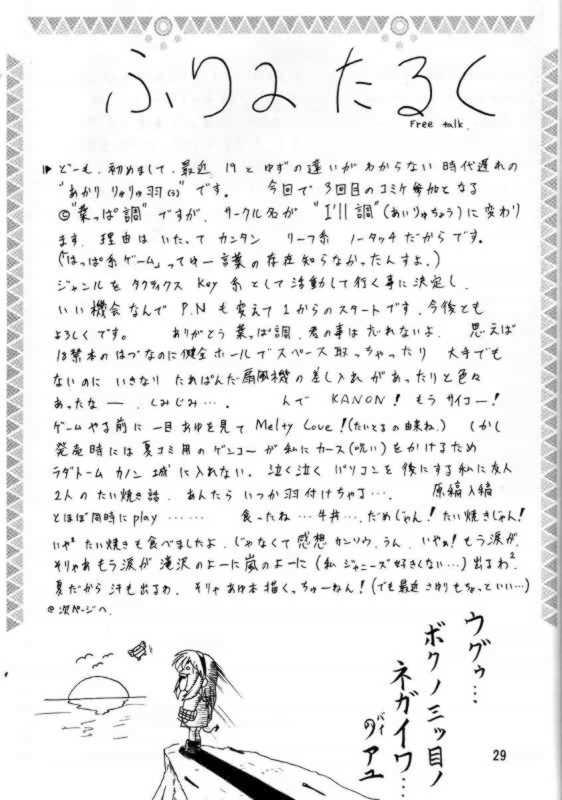 ふりぃ たるく
Free talk.
どーも、初めまして、最近 19と ゆずの違いが わからない 時代遅れの
"あかり りゅりゅ羽(う)" です。 今回で 3回目のコミケ参加となる
©"葉っぱ調" ですが、サークル名が "I'll 調"(あいりゅちょう)に変わり
ます。理由は いたって カンタン リーフ系 ノータッチだからです。
(「はっぱ系ゲーム」ってゆー言葉の存在知らなかったんすよ。)
ジャンルを タクティクス Key 系として活動して行く事に決定し、
いい機会なんで P.N も変えて 1からのスタートです。今後とも
よろしくです。 ありがとう 葉っぱ調、君の事は忘れないよ、 思えば
18禁本のはづなのに健全ホールでスペース取っちゃったり 大手でも
ないのに いきなり たれぱんだ扇風機の差し入れがあったりと色々
あったなー、しみじみ…。 んで KANON! もう サイコー!
ゲームやる前に 一目あゆを見て Melty Love!(たいとるの由来ね。) しかし
発売時には夏コミ用のゲンコーが私にカース(呪い)をかけるため
ラダトーム カノン 城に入れない。泣く泣く パソコンを後にする私に友人
2人の たい焼き話、あんたら いつか羽付けちゃる…。 原稿入稿
とほぼ同時にplay …… 食ったね…牛丼…だめじゃん! たい焼きじゃん!
いや² たい焼きも食べましたよ、じゃなくて 感想 カンソウ、うん、いやぁ! もう涙が、
そりゃあもう涙が 滝沢のよーに嵐のよーに(私 ジャニーズ好きくない…)出るわ²、
夏だから 汗も出るわ、そりゃ あゆ本描くっちゅーねん!(でも最近 さゆりもちょっといい…)
@次ページへ、
ウグゥ…
ボクノ三ッ目ノ
ネガイワ…
by
のアユ
29